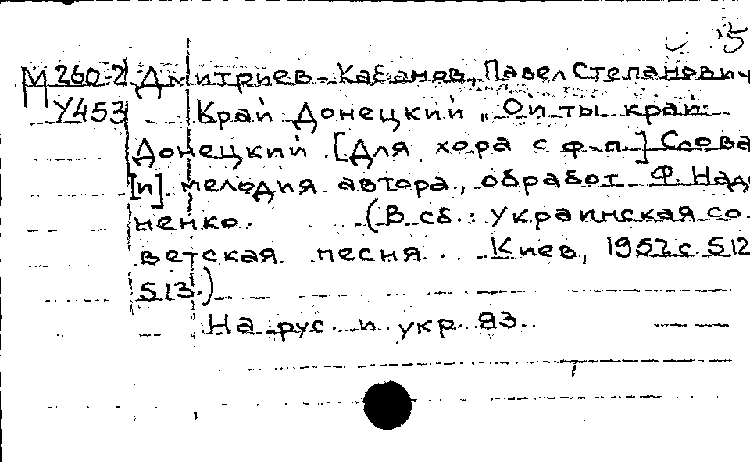 М 260-2 Дмитриев-Кабанов, Павел Степанович
У453 Край Донецкий „Ой ты край
Донецкий. [Для хора с ф-п.] Слова
[и] мелодия автора, обработ. Ф. Надо
ненко. (В сб.: Украинская со
ветская песня. Киев, 1952 с. 512
513.)
На рус. и укр. яз.